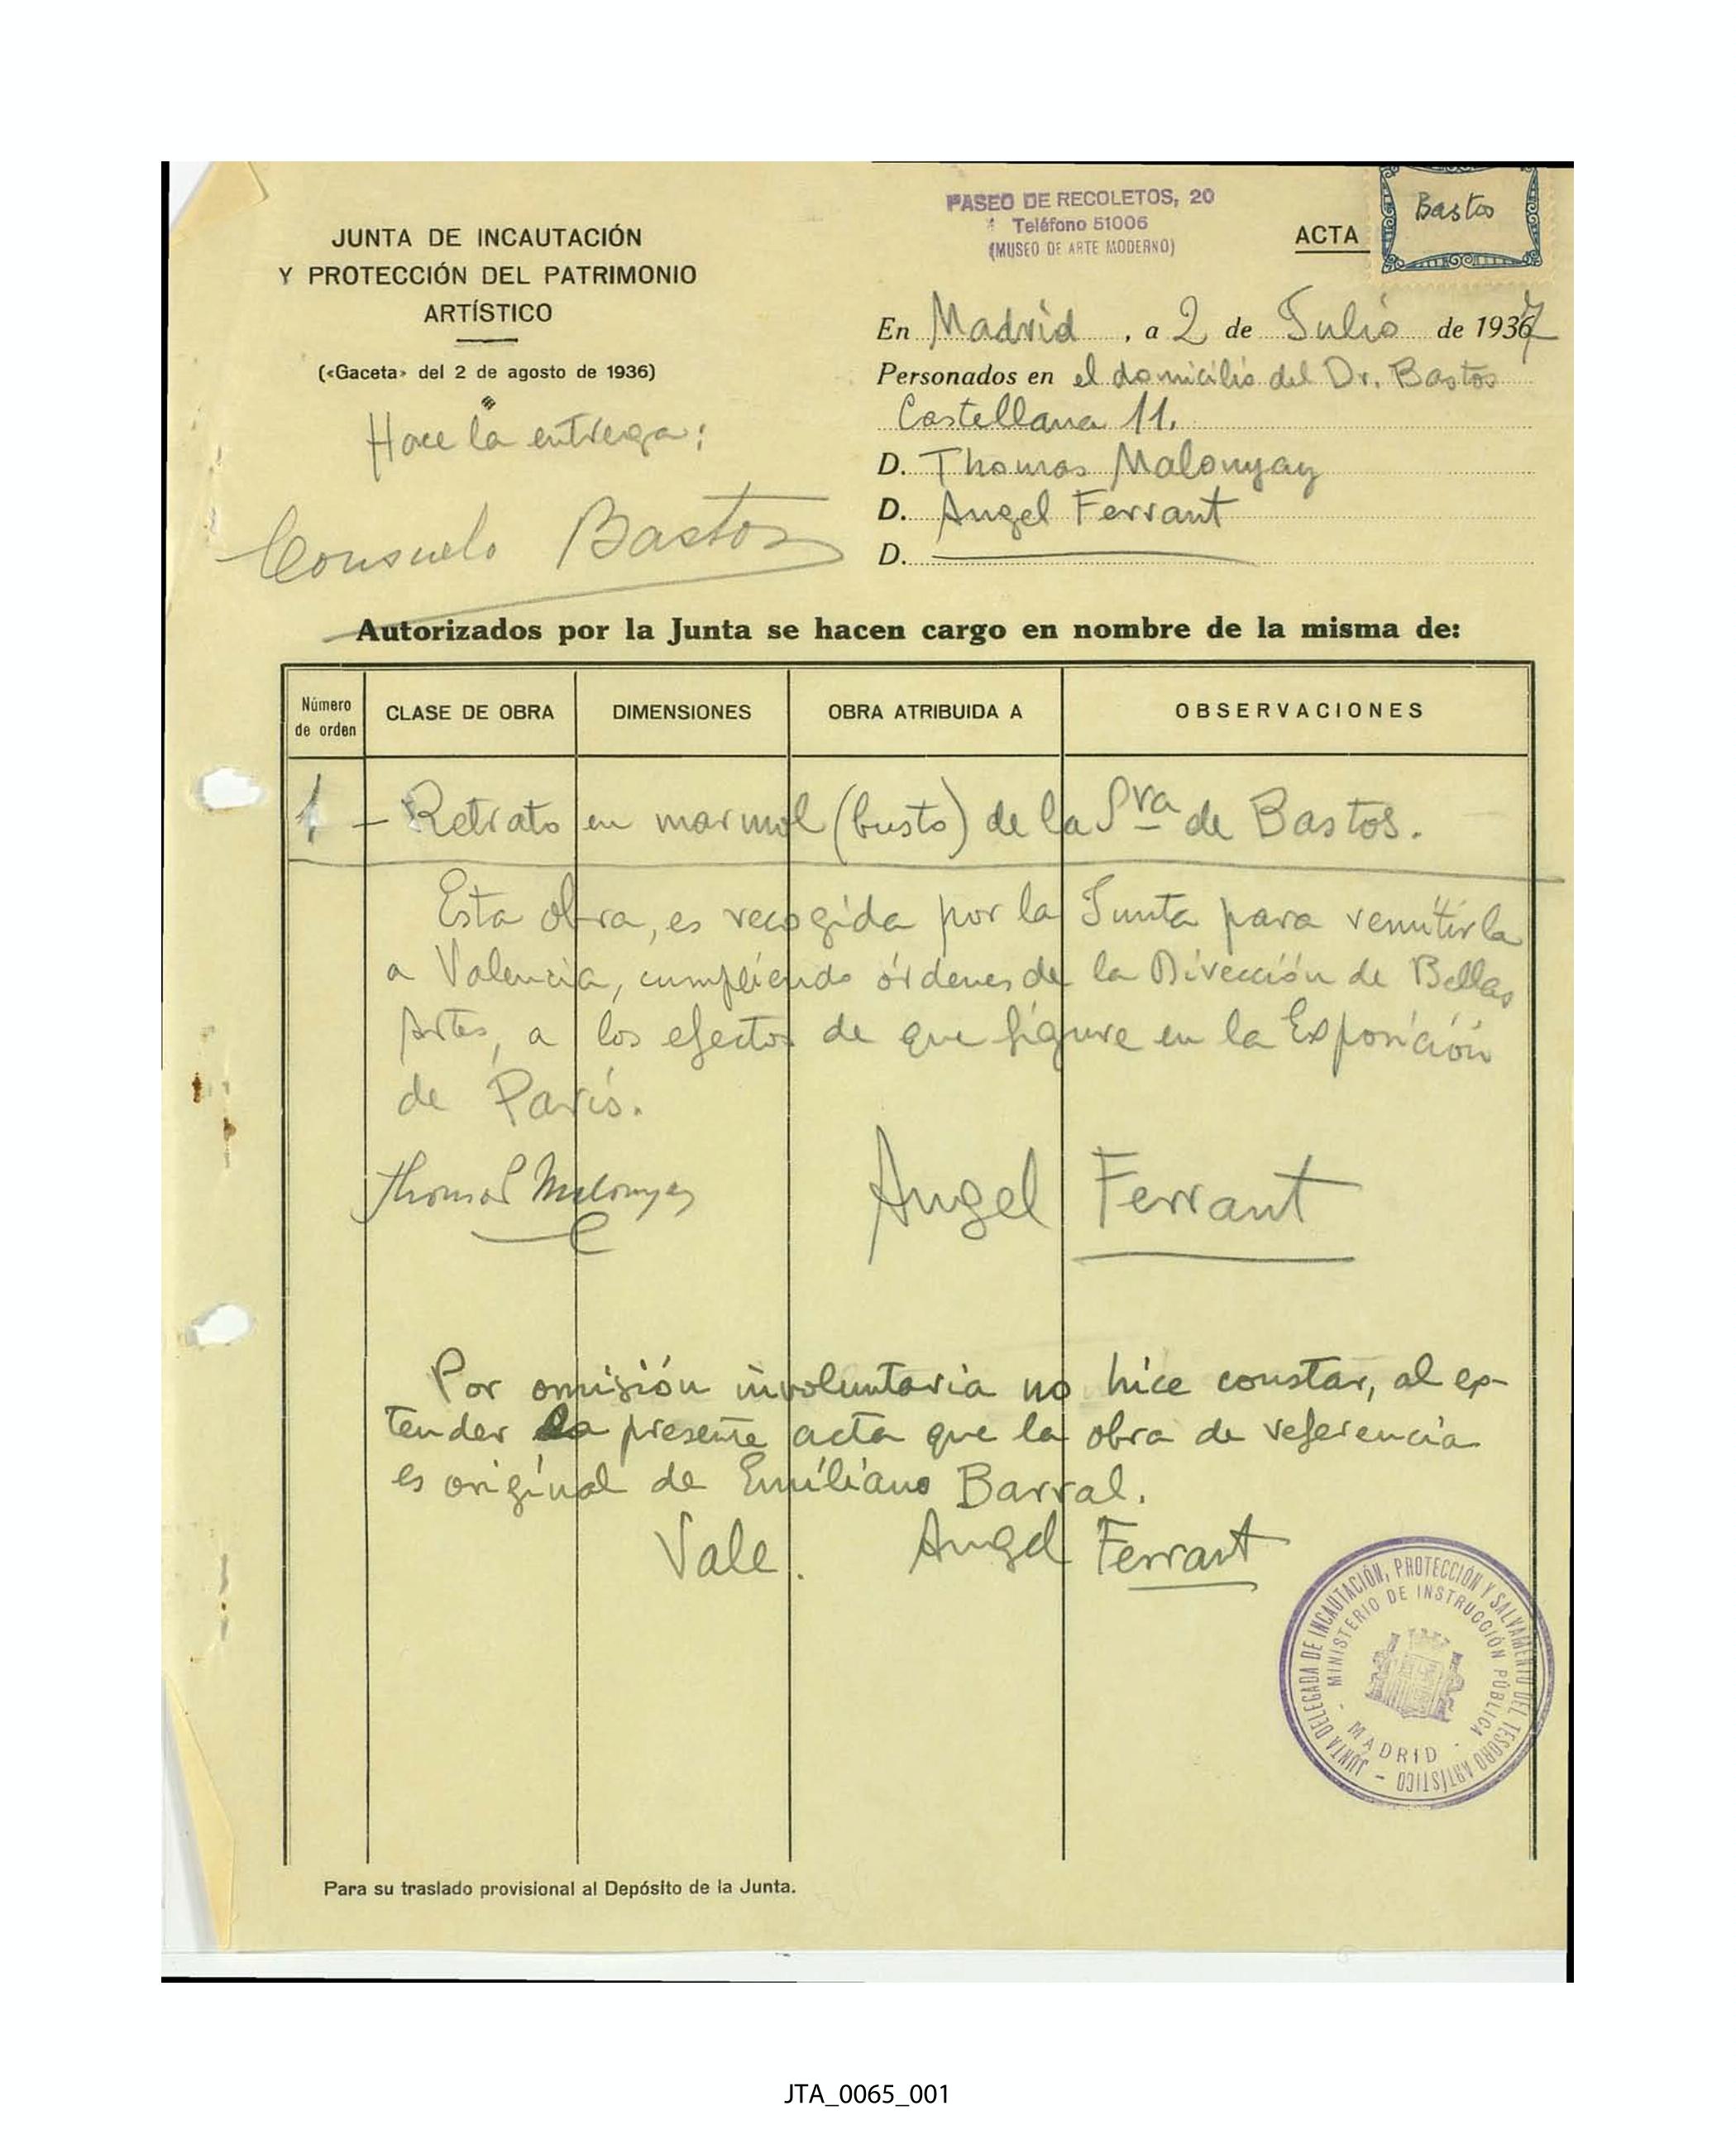 PASEO DE RECOLETOS, 20
Teléfono 51006
(MUSEO DE ARTE MODERNO)
ACTA
Bastos
JUNTA DE INCAUTACIÓN
Y PROTECCIÓN DEL PATRIMONIO
ARTÍSTICO
(«Gaceta» del 2 de agosto de 1936)
Hace la entrega:
Consuelo Bastos
En Madrid, a 2 de Julio de 1937
Personados en el domicilio del Dr. Bastos
Castellana 11.
D. Thomas Malonyay
D. Angel Ferrant
D.
Autorizados por la Junta se hacen cargo en nombre de la misma de:
Número de orden
CLASE DE OBRA
DIMENSIONES
OBRA ATRIBUIDA A
OBSERVACIONES
1 - Retrato en marmol (busto) de la Sra de Bastos.
Esta obra, es recogida por la Junta para remitirla
a Valencia, cumpliendo órdenes de la Dirección de Bellas
Artes, a los efectos de que figure en la Exposición
de París.
Thomas Malonyay
Angel Ferrant
Por omisión involuntaria no hice constar, al ex-
tender la presente acta que la obra de referencia
es original de Emiliano Barral.
Vale. Angel Ferrant
JUNTA DELEGADA DE INCAUTACIÓN, PROTECCIÓN Y SALVAMENTO DEL TESORO ARTÍSTICO
MINISTERIO DE INSTRUCCIÓN PÚBLICA
MADRID
Para su traslado provisional al Depósito de la Junta.
JTA_0065_001